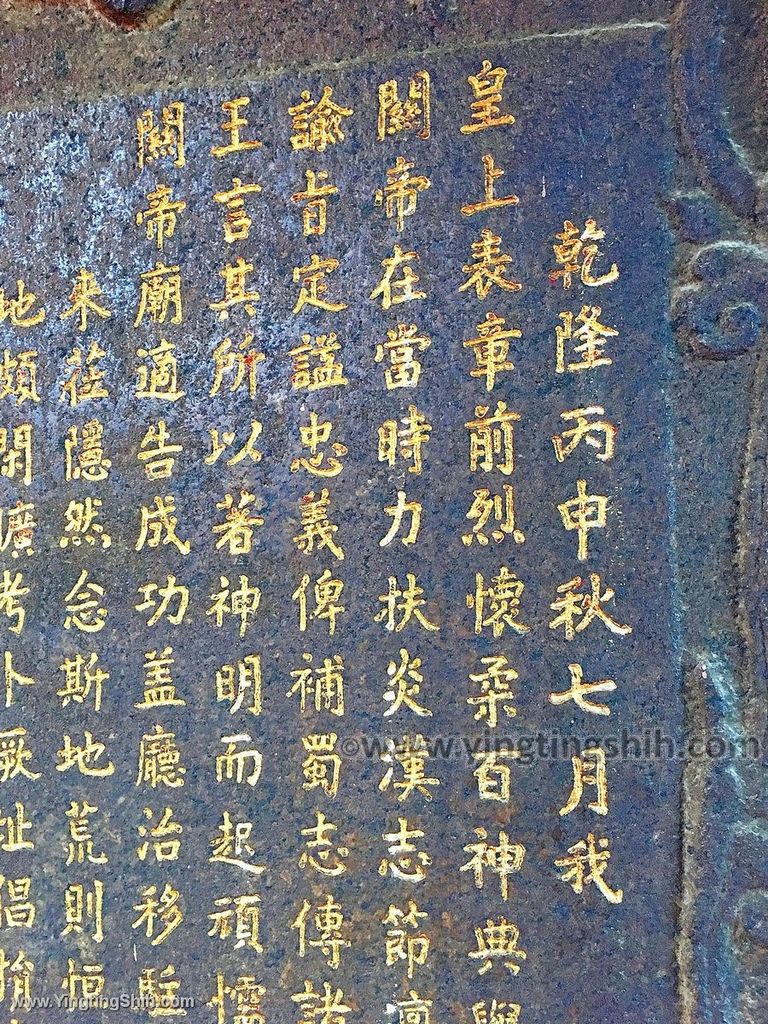 乾隆丙申秋七月我
皇上表章前烈懷柔百神典舉
關帝在當時力扶炎漢志節凜
諭旨定謚忠義俾補蜀志傳諸
王言其所以著神明而起頑懦
關帝廟適告成功盖廳治移駐
来莅隱然念斯地荒則恒
地頗閑曠考卜厥址倡捐
©www.yingtingshih.com
www.YingtingShih.com